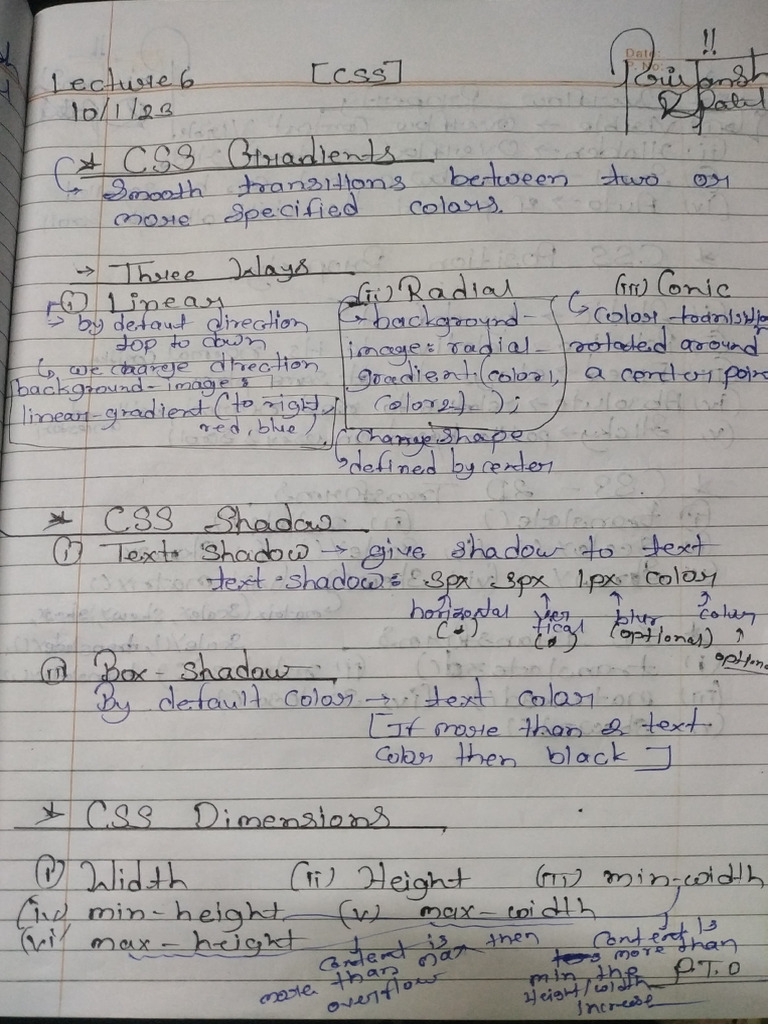 !!
Date:
P. No:
Lecture 6 [CSS]
10/1/23
* CSS Gradients
Smooth transitions between two or
more specified colors.
→ Three Ways
(i) Linear
→ by defaut direction
top to down
we change direction
background-image:
linear-gradient (to right,
red, blue)
(ii) Radial
background-
image: radial-
gradient (color1,
color2);
change shape
defined by center
(iii) Conic
color
rotated around
a center point
* CSS Shadow
(i) Text Shadow → give shadow to text
text-shadow: 3px 3px 1px color
horizontal ver blur color
tical (optional)
optional
(ii) Box-Shadow
By default color → text color
[If more than 2 text
color then black]
* CSS Dimensions
(i) Width (ii) Height (iii) min-width
(iv) min-height (v) max-width
(vi) max-height
content is then
more than max
overflow
Content is
more than
min the
Height/width
increase
P.T.O